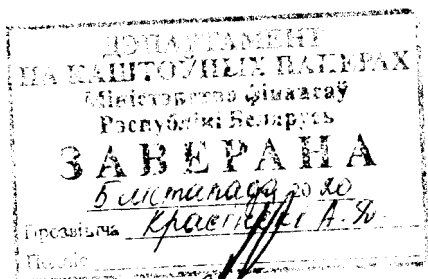 ДЭПАРТАМЕНТ
ПА КАШТОЎНЫХ ПАПЕРАХ
Міністэрства фінансаў
Рэспублікі Беларусь
ЗАВЕРАНА
5 лістапада 2020
Прозвішча А. Я.